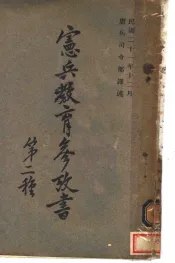 民國二十一年十二月
憲兵司令部譯述
憲兵教育參攷書
第二種